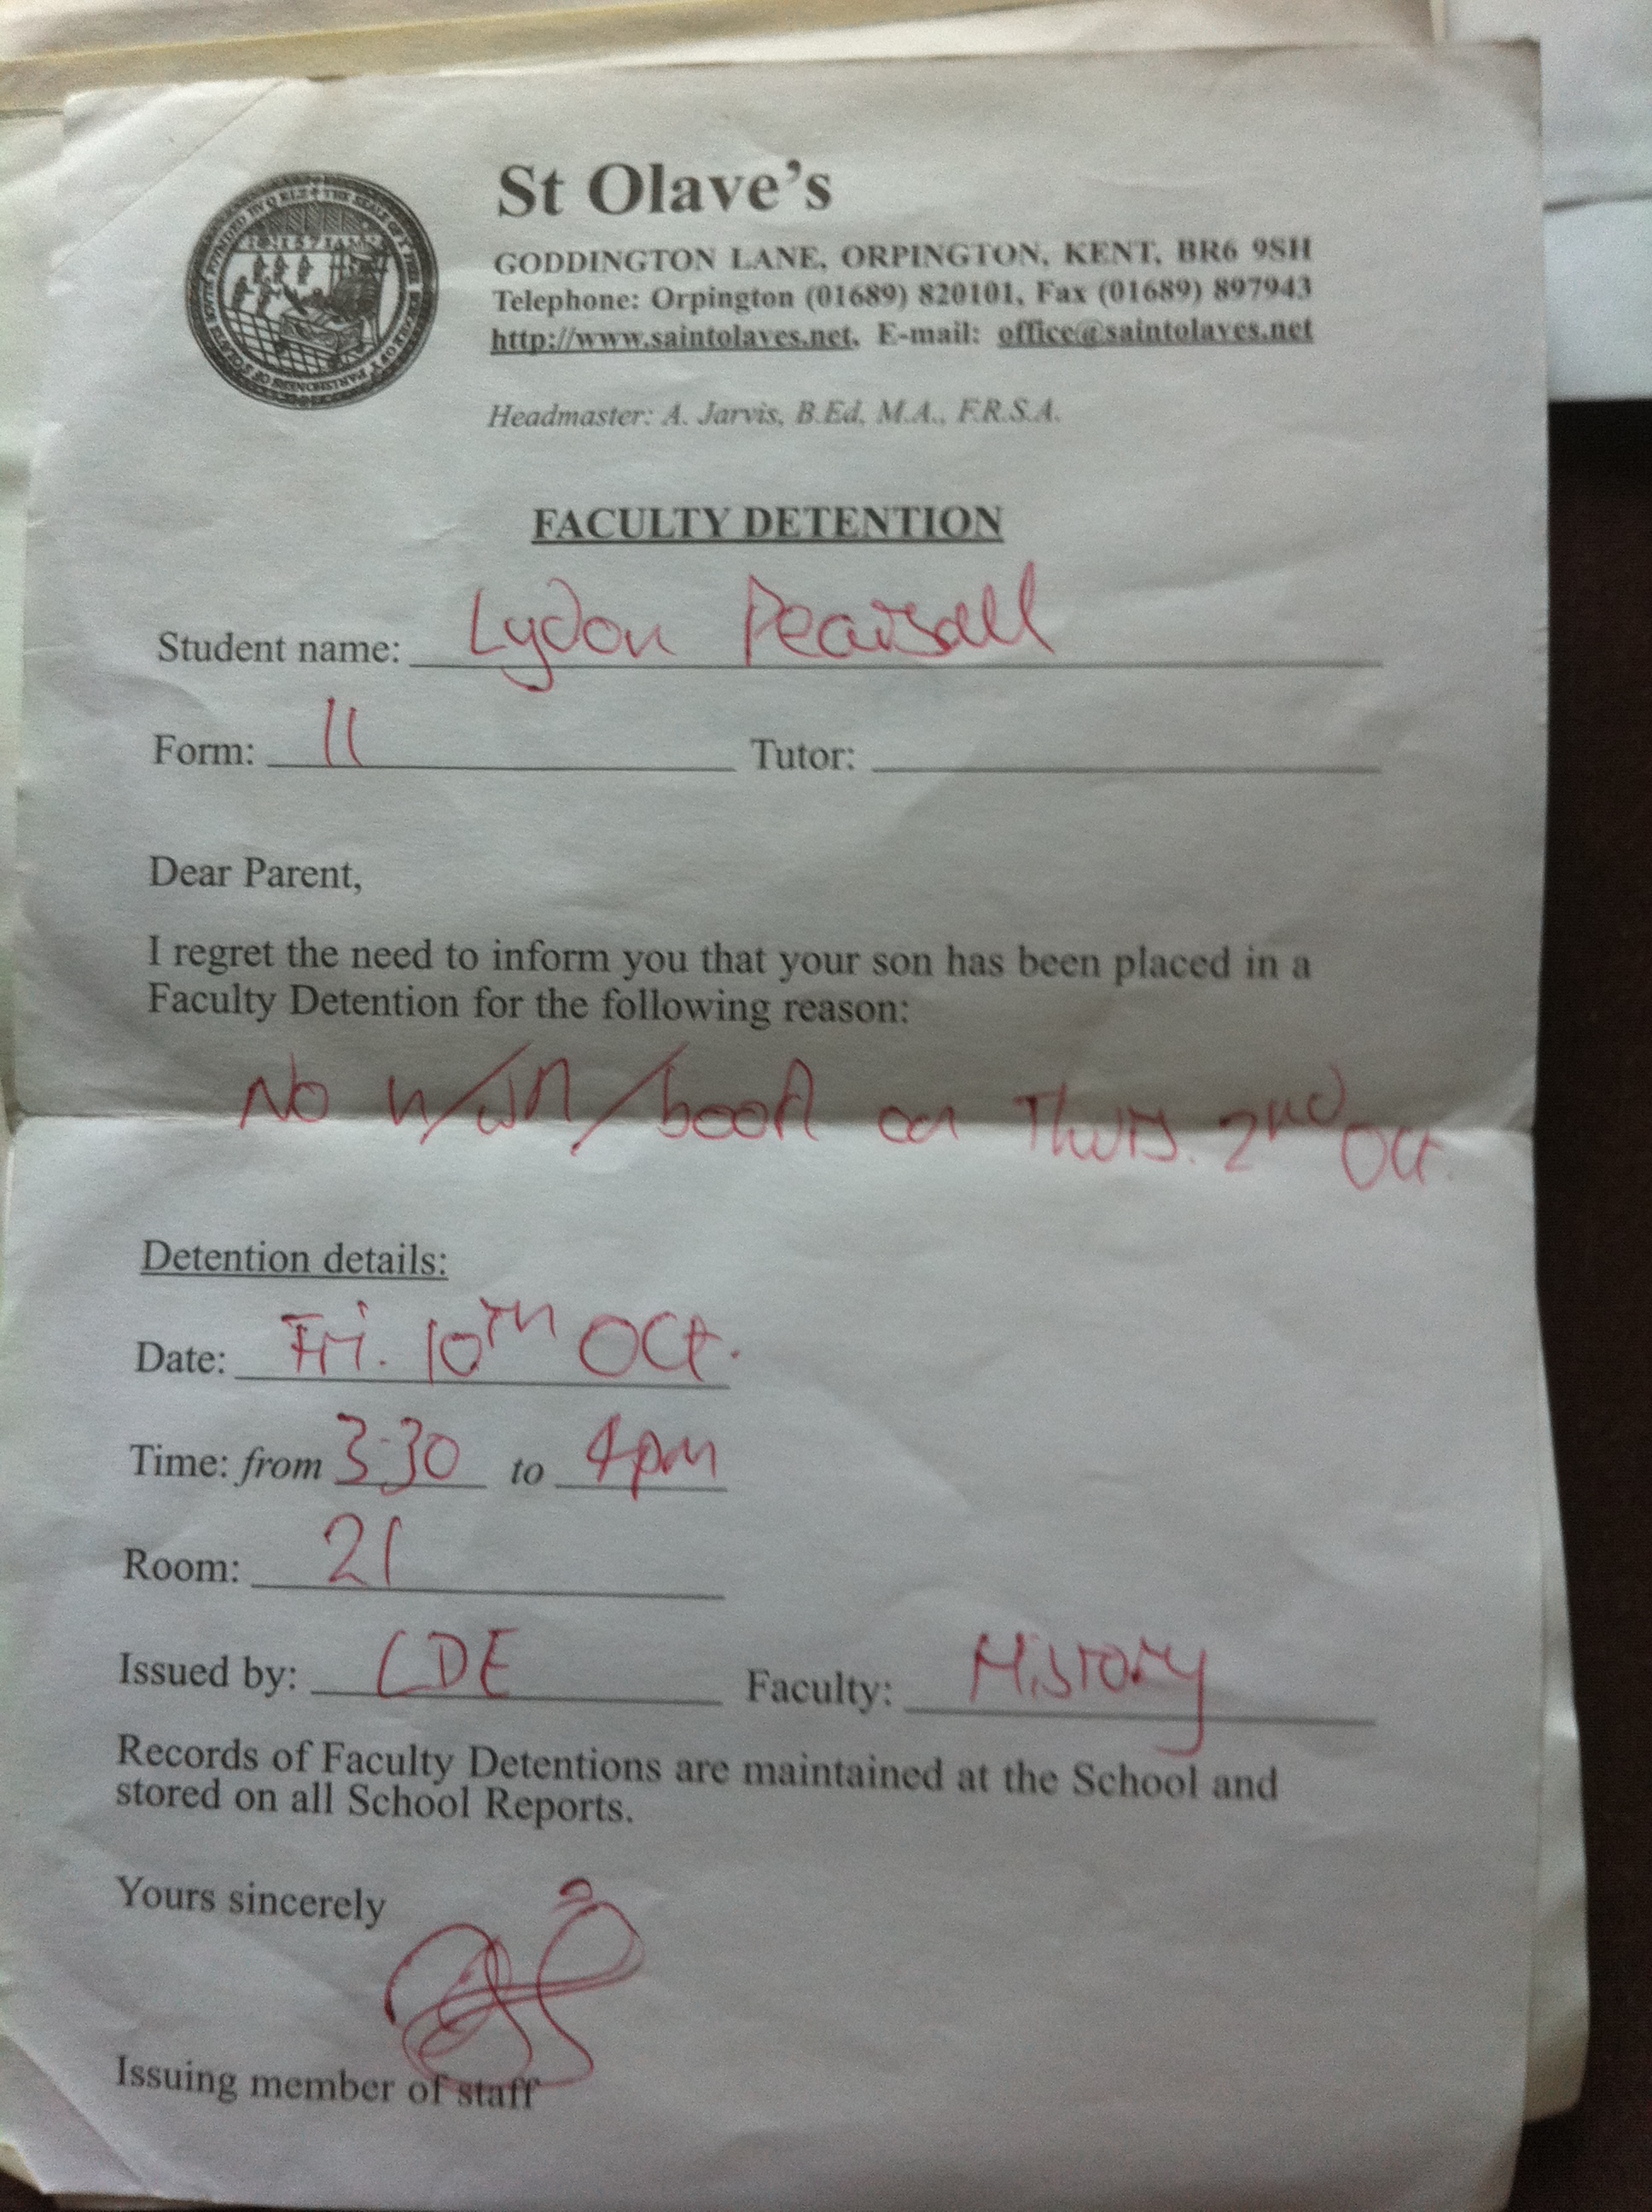 St Olave's
GODDINGTON LANE, ORPINGTON, KENT, BR6 9SH
Telephone: Orpington (01689) 820101, Fax (01689) 897943
http://www.saintolaves.net, E-mail: office@saintolaves.net
Headmaster: A. Jarvis, B.Ed, M.A., F.R.S.A.
FACULTY DETENTION
Student name: Lydon Pearsall
Form: 11 Tutor:
Dear Parent,
I regret the need to inform you that your son has been placed in a
Faculty Detention for the following reason:
No book on Thurs. 2nd Oct.
Detention details:
Date: Fri. 10TH Oct.
Time: from 3.30 to 4pm
Room: 21
Issued by: LDE Faculty: History
Records of Faculty Detentions are maintained at the School and
stored on all School Reports.
Yours sincerely
Issuing member of staff